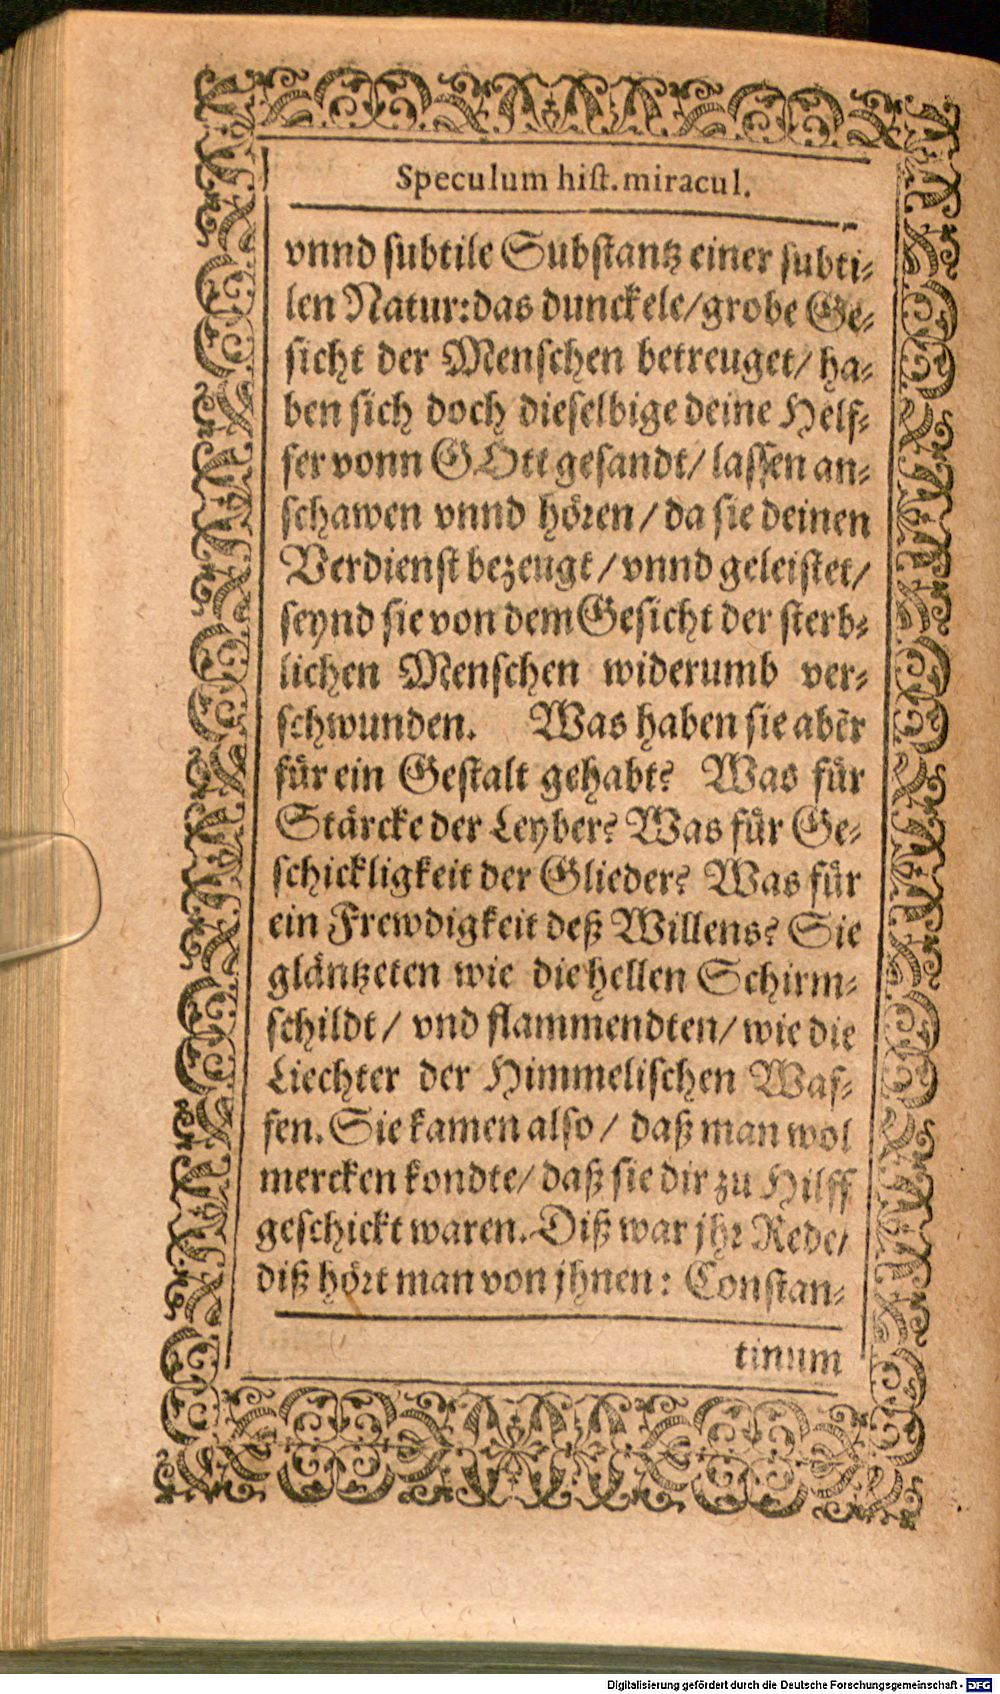 Speculum hist. miracul.
vnnd subtile Substantz einer subti-
len Natur: das dunckele/ grobe Ge-
sicht der Menschen betreuget/ ha-
ben sich doch dieselbige deine Helf-
fer vonn GOtt gesandt/ lassen an-
schawen vnnd hören/ da sie deinen
Verdienst bezeugt/ vnnd geleistet/
seynd sie von dem Gesicht der sterb-
lichen Menschen widerumb ver-
schwunden. Was haben sie aber
für ein Gestalt gehabt? Was für
Stärcke der Leyber? Was für Ge-
schickligkeit der Glieder? Was für
ein Frewdigkeit deß Willens? Sie
gläntzeten wie die hellen Schirm-
schildt/ vnd flammendten/ wie die
Liechter der Himmelischen Waf-
fen. Sie kamen also/ daß man wol
mercken kondte/ daß sie dir zu Hilff
geschickt waren. Diß war jhr Rede/
diß hört man von jhnen: Constan-
tinum
Digitalisierung gefördert durch die Deutsche Forschungsgemeinschaft - DFG